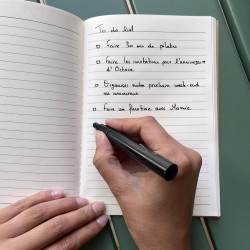 To do list
Faire 30 min de pilates
Faire les invitations pour l'anniversaire
d'Octave
Organiser notre prochain week-end
en amoureux
Faire un facetime avec Mamie